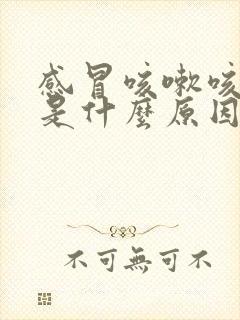 感冒咳嗽咳
是什麼原因
不可無可不